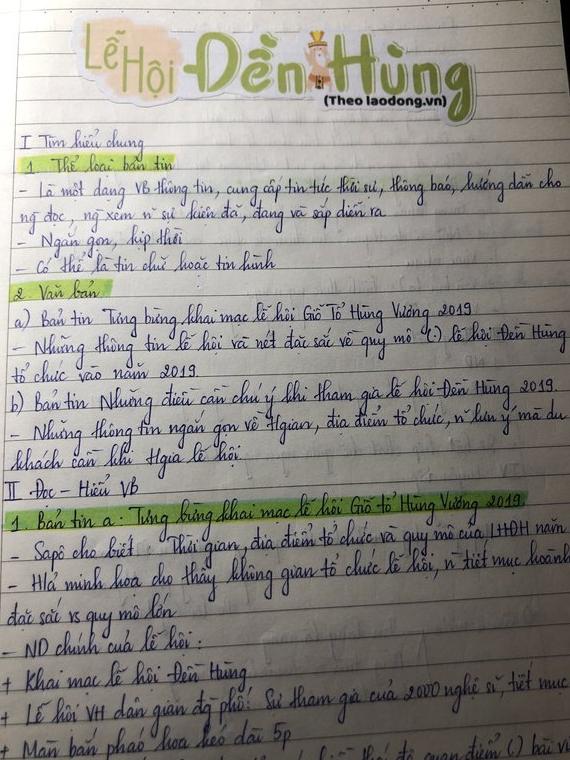 Lễ Hội Đền Hùng
(Theo laodong.vn)
I Tìm hiểu chung
1. Thể loại bản tin
- Là một dạng VB thông tin, cung cấp tin tức thời sự, thông báo, hướng dẫn cho
ng đọc, ng xem n~ sự kiện đã, đang và sắp diễn ra
- Ngắn gọn, kịp thời
- Có thể là tin chữ hoặc tin hình
2. Văn bản
a) Bản tin Tưng bừng khai mạc lễ hội Giỗ Tổ Hùng Vương 2019
- Những thông tin lễ hội và nét đặc sắc về quy mô (.) lễ hội Đền Hùng
tổ chức vào năm 2019.
b) Bản tin Những điều cần chú ý khi tham gia lễ hội Đền Hùng 2019.
- Những thông tin ngắn gọn về tgian, địa điểm tổ chức, n~ lưu ý mà du
khách cần khi tgia lễ hội.
II Đọc - Hiểu VB
1. Bản tin a: Tưng bừng khai mạc lễ hội Giỗ tổ Hùng Vương 2019
- Sapô cho biết: Thời gian, địa điểm tổ chức và quy mô của LHĐH năm
- H/ả minh họa cho thấy không gian tổ chức lễ hội, n~ tiết mục hoành
đặc sắc vs quy mô lớn
- ND chính của lễ hội:
+ Khai mạc lễ hội Đền Hùng
+ Lễ hội VH dân gian đg phố: Sự tham gia của 2000 nghệ sĩ, tiết mục
+ Màn bắn pháo hoa kéo dài 5p